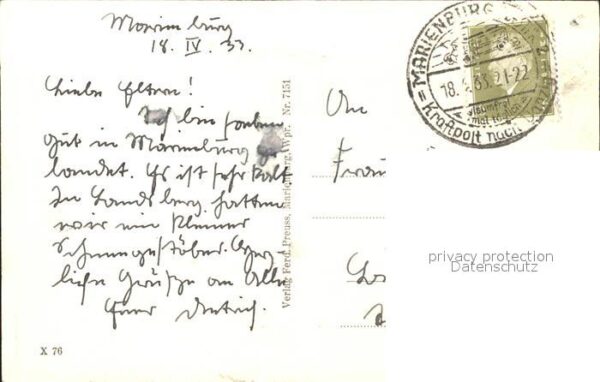 Marienburg
18. IV. 33.
Liebe Eltern!
Ich bin soeben
gut in Marienburg ge
landet. Es ist sehr kalt
In Landsberg hatten
wir ein kleines
Schneegestöber. Herz
liche Grüße an Alle
Euer Dietrich.
X 76
Verlag Ferd. Preuss, Marienburg, Wpr. Nr. 7151
An
Frau
MARIENBURG
18. 4. 33. 21-22
Kraftpost nach
privacy protection
Datenschutz